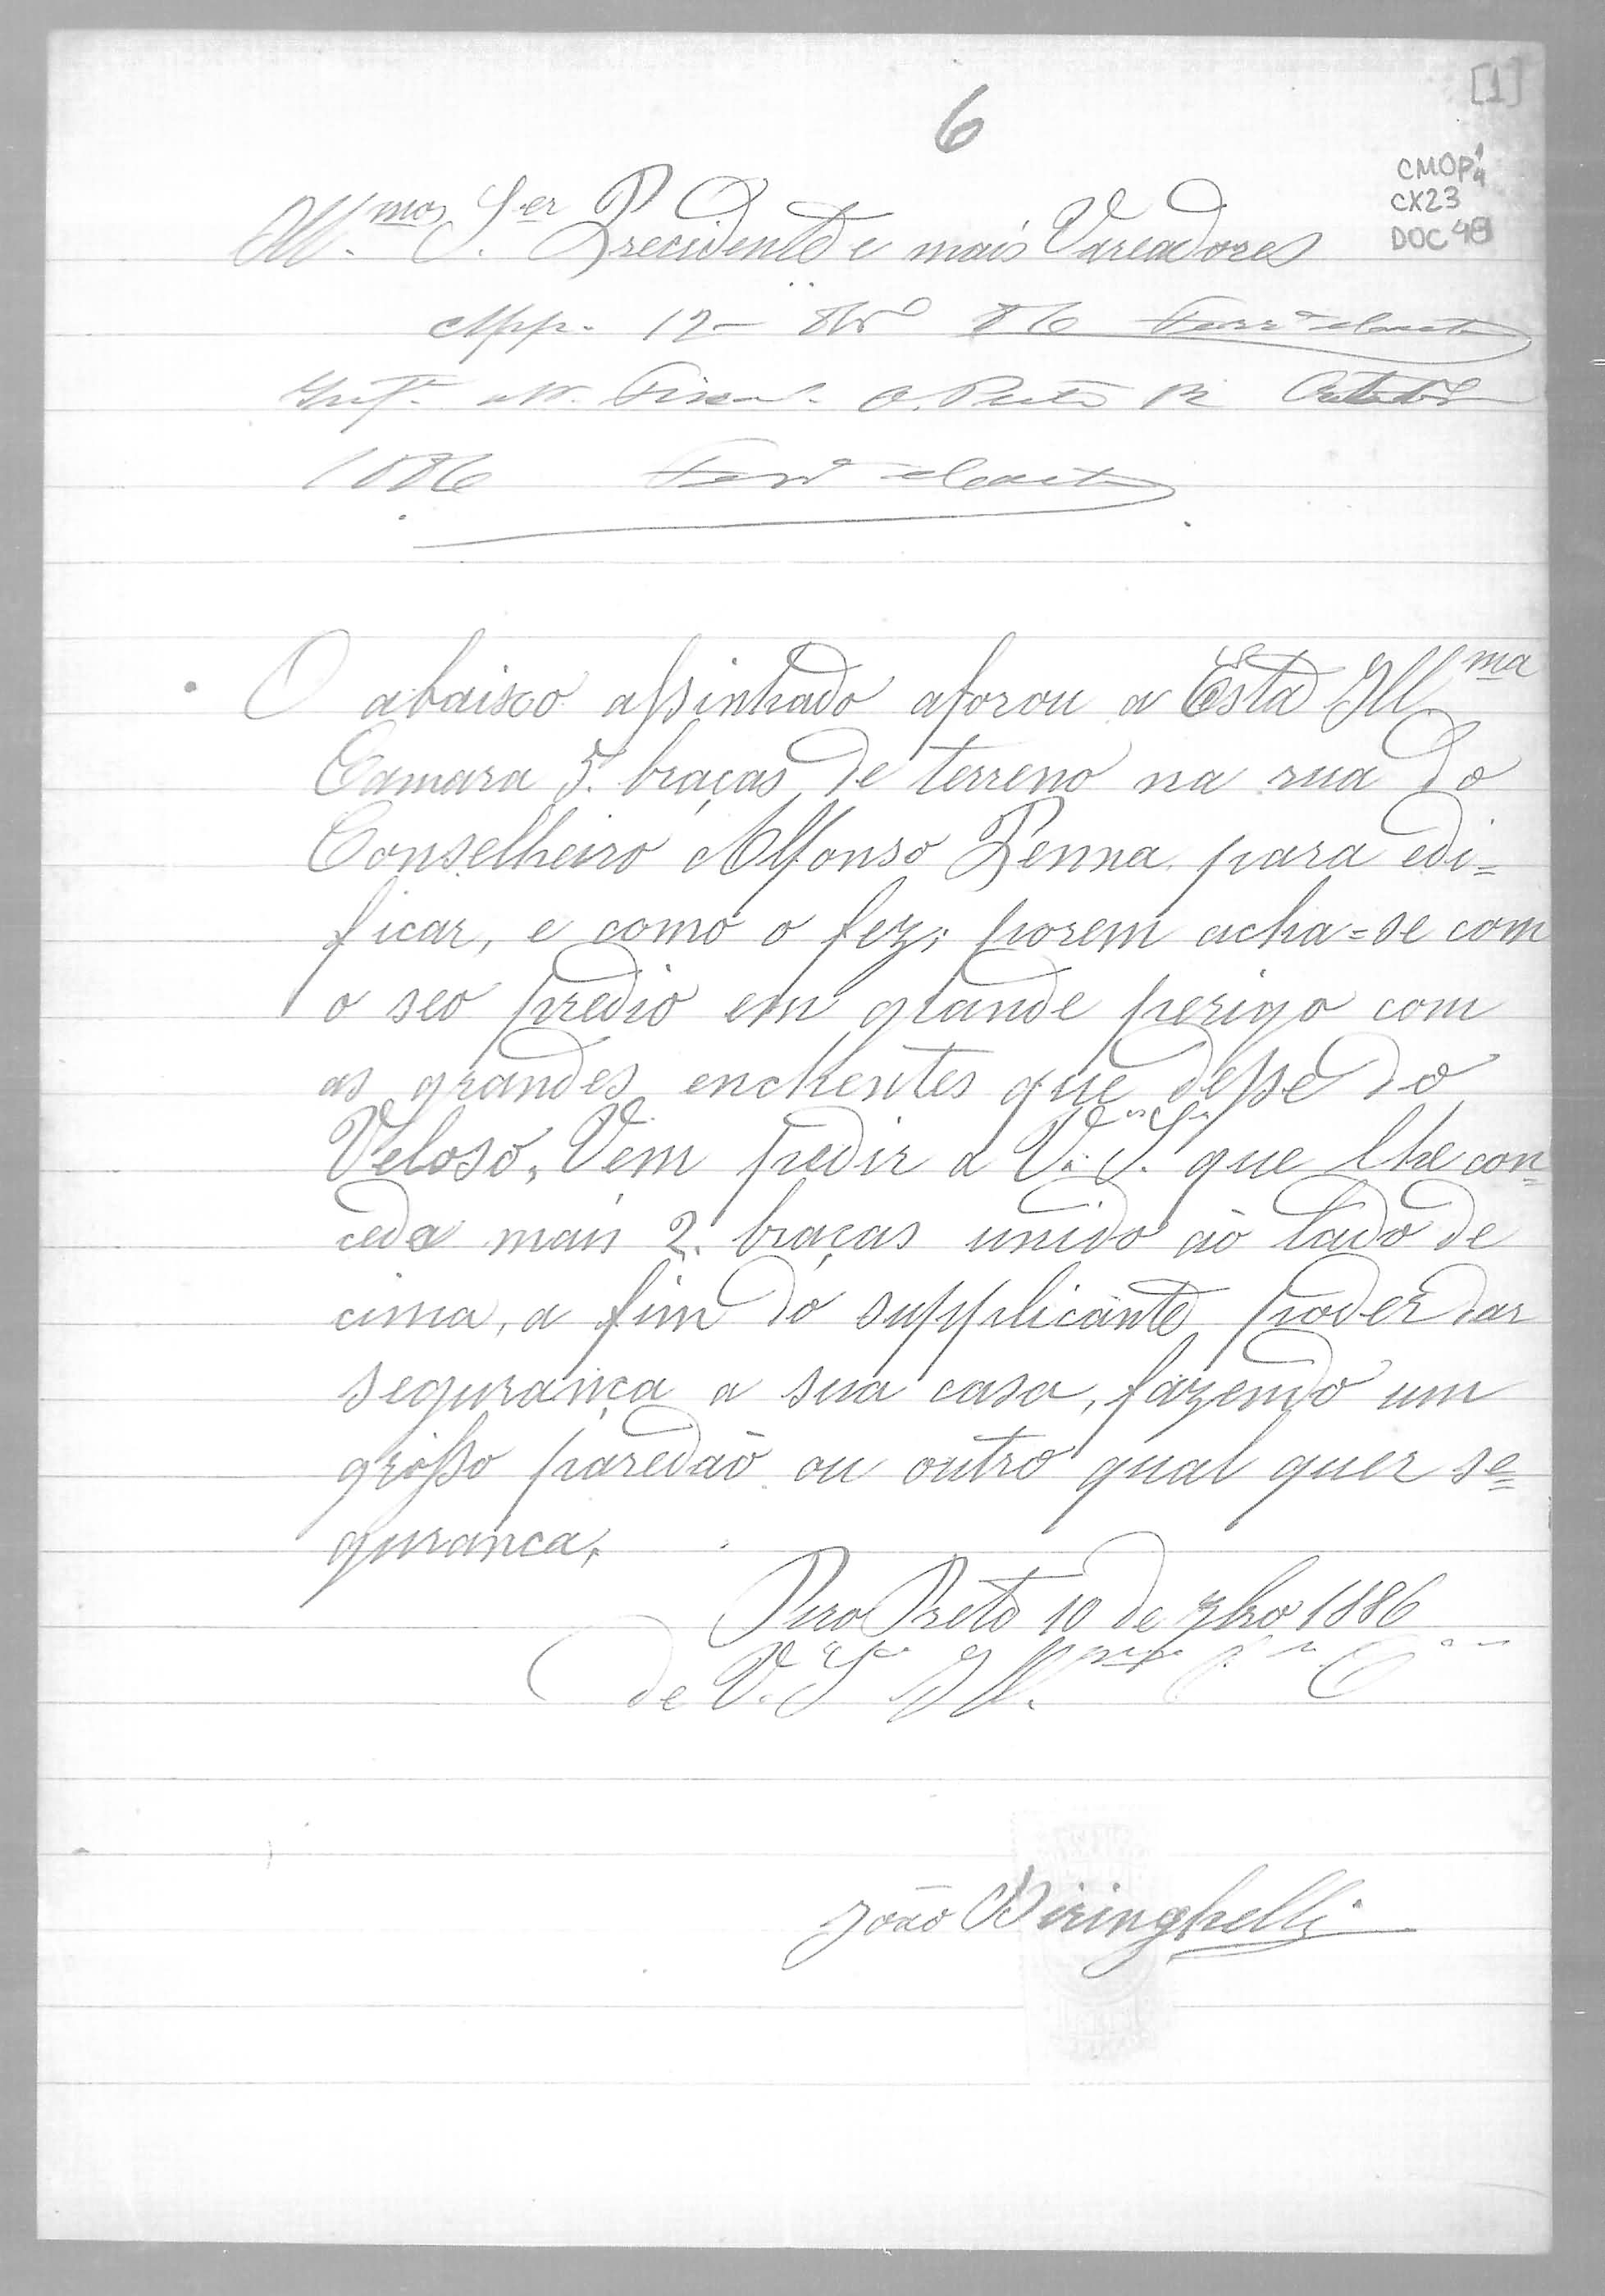 [1]
6
CMOP
CX23
DOC 48
Ill.mos S.er Precidente e mais Vareadores
App. 12 - 86
Inf. Fiscal O. Preto 12 Outubro
1886
O abaixo assinhado aforou a Esta Ill.ma
Camara 5. braças de terreno na rua do
Conselheiro Affonso Penna para edi=
ficar, e como o fez; porem acha=se com
o seo predio em grande perigo com
as grandes enchentes que desse do
Veloso, Vem pedir a V.as S.as que lhe con=
ceda mais 2. braças unido ao lado de
cima, a fim do supplicante poder dar
segurança a sua casa, fazendo um
grosso paredão ou outro qual quer se=
guranca,
Ouro Preto 10 de 7bro 1886
de V. S.as Ill.mos
João Biringhelli